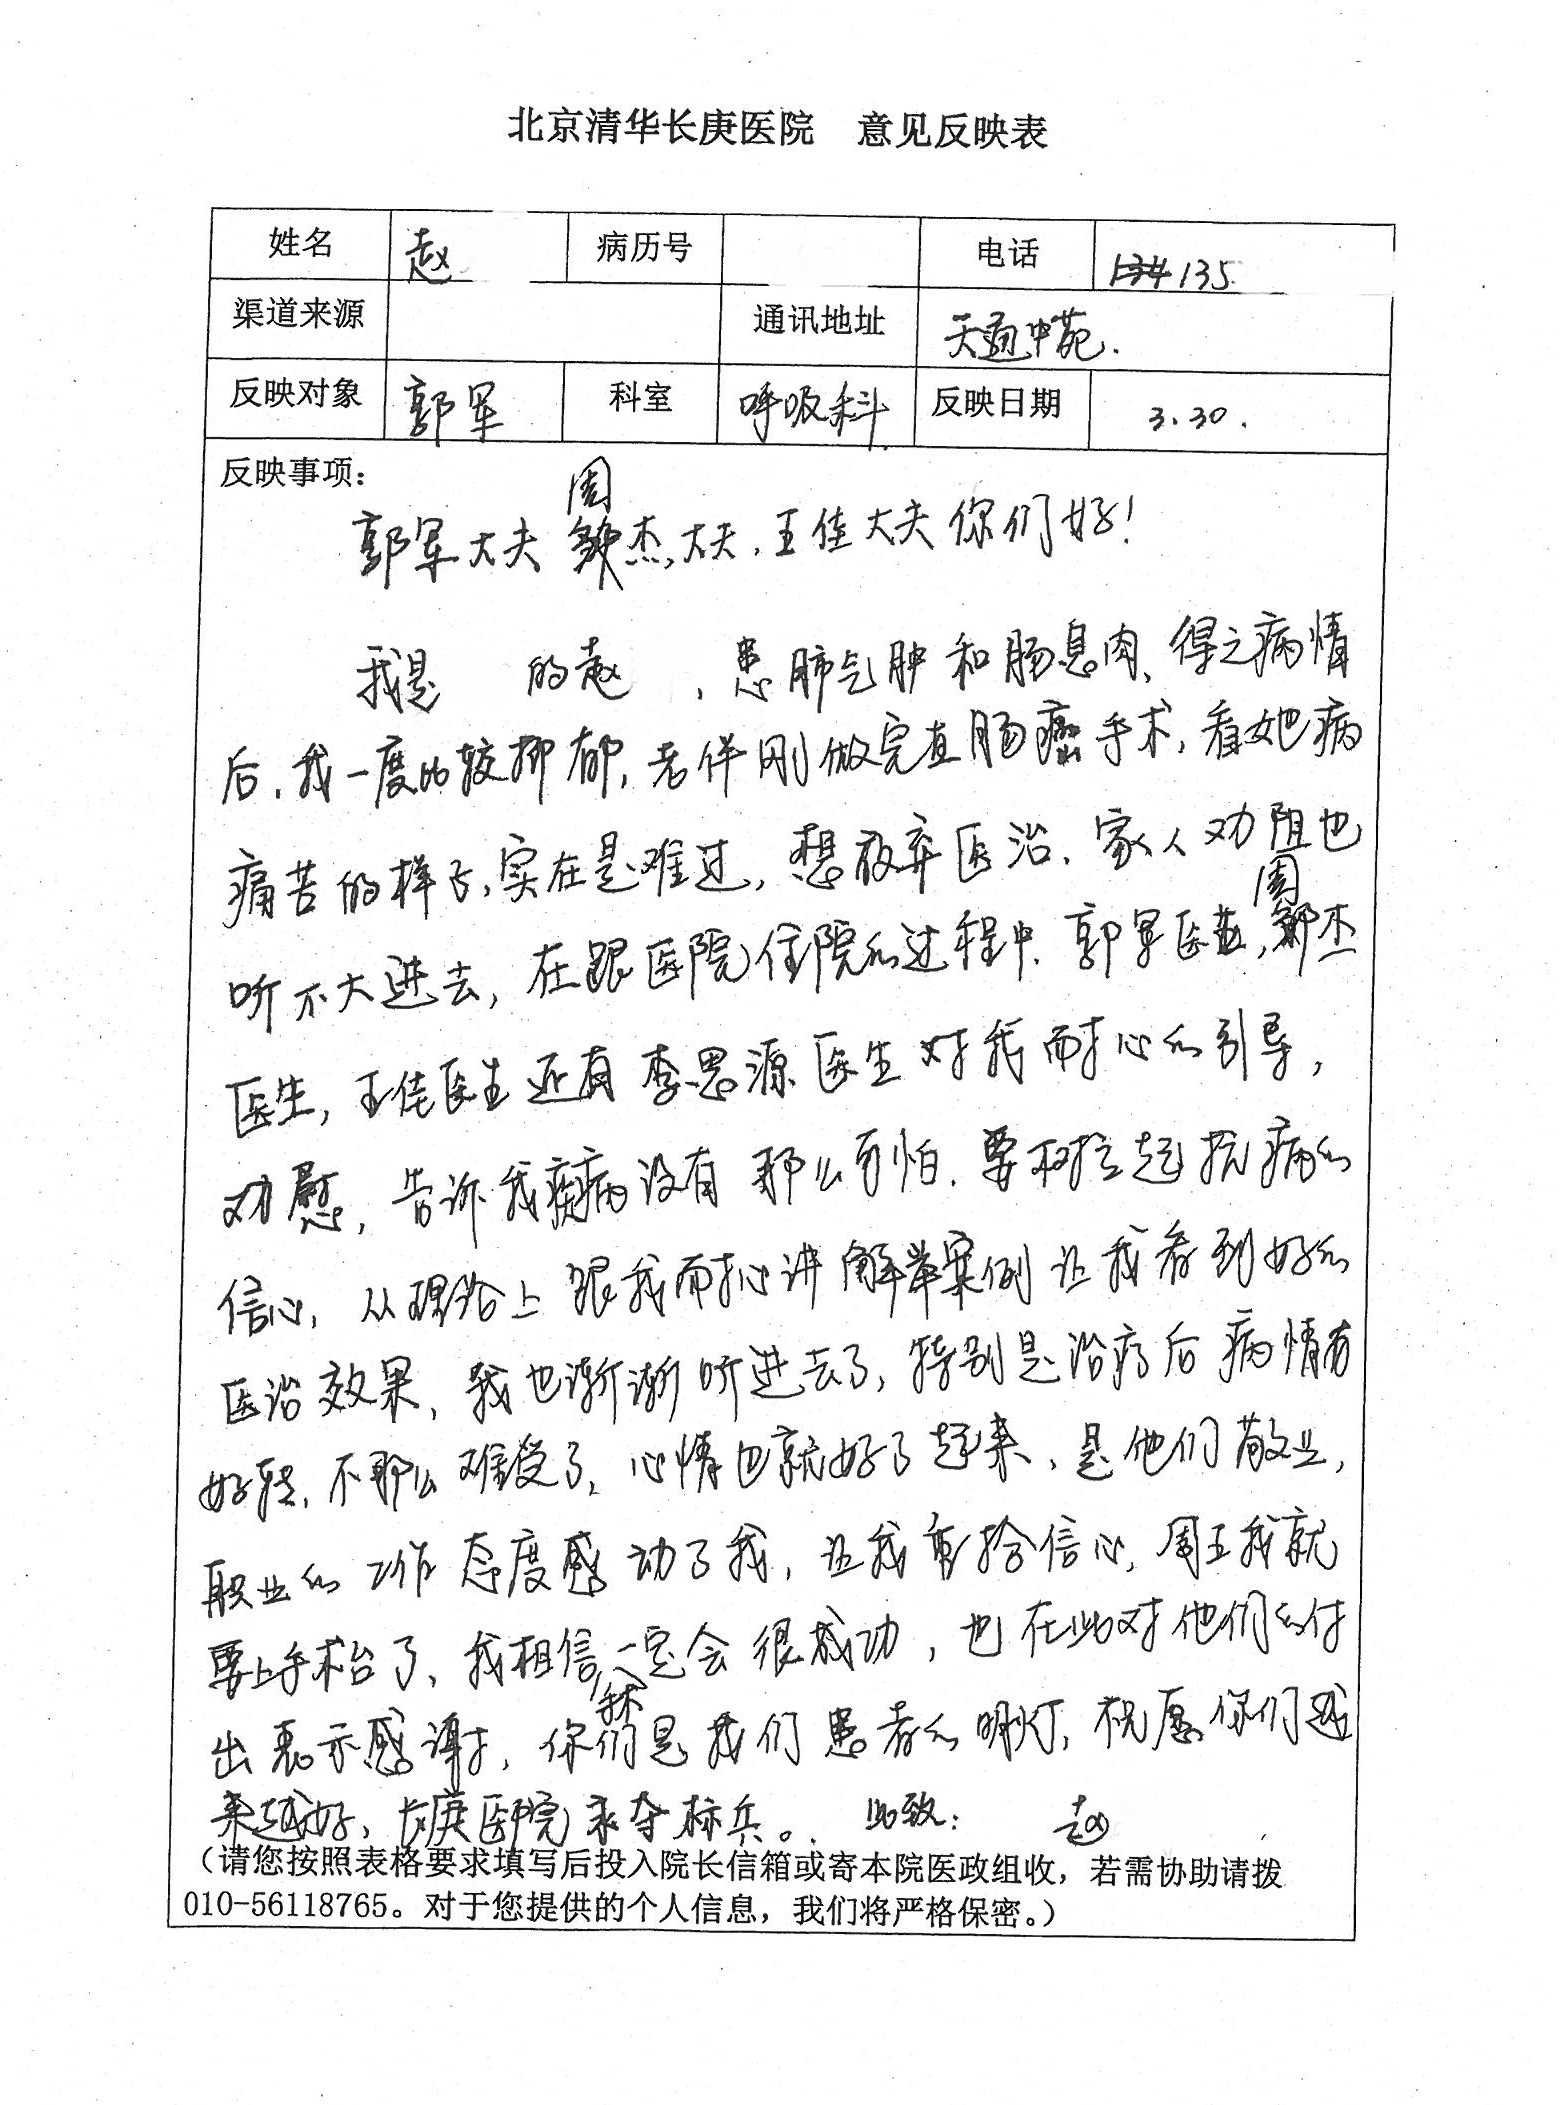 北京清华长庚医院 意见反映表
姓名 赵 病历号 电话 135
渠道来源 通讯地址 天通中苑.
反映对象 郭军 科室 呼吸科 反映日期 3.30.
反映事项：
郭军大夫 周杰大夫，王佳大夫你们好！
我是 的赵 ，患肺气肿和肠息肉、得之病情
后，我一度比较抑郁，老伴刚做完直肠癌手术，看她病
痛苦的样子，实在是难过，想放弃医治、家人劝阻也
听不大进去，在跟医院住院的过程中、郭军医生，周杰
医生，王佳医生还有李思源医生对我耐心的引导，
劝慰，告诉我疾病没有那么可怕．要树立起抗病的
信心，从理论上跟我耐心讲解举案例让我看到好的
医治效果，我也渐渐听进去了，特别是治疗后病情有
好转，不那么难受了，心情也就好了起来，是他们敬业，
职业的工作态度感动了我，让我重拾信心，周五我就
要上手术台了，我相信一定会很成功，也在此对他们的付
出表示感谢，你们是我们患者的明灯，祝愿你们越
来越好，长庚医院永夺标兵。 此致： 赵
（请您按照表格要求填写后投入院长信箱或寄本院医政组收，若需协助请拨
010-56118765。对于您提供的个人信息，我们将严格保密。）